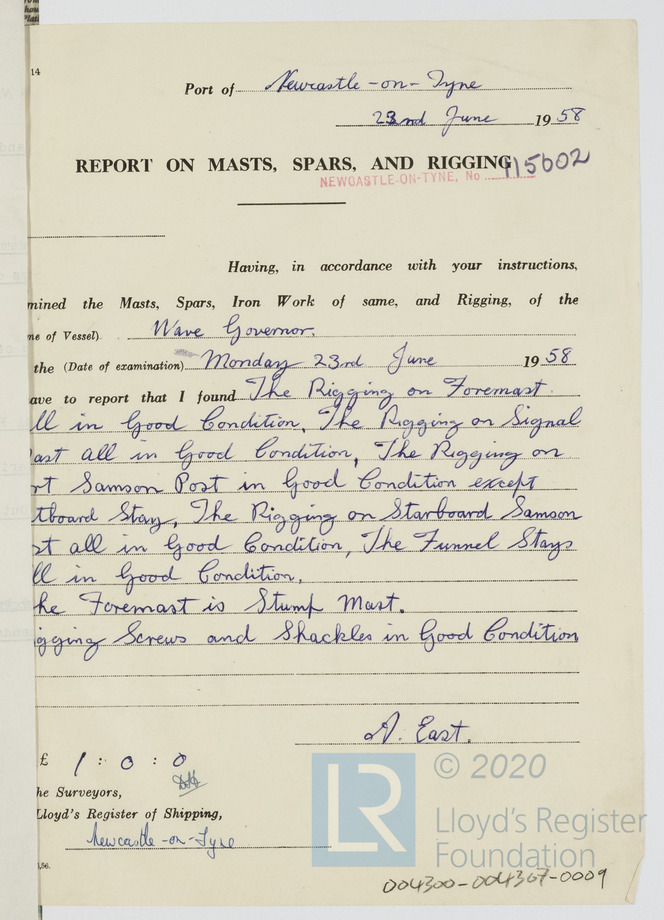 14
Port of Newcastle-on-Tyne
23rd June 1958
REPORT ON MASTS, SPARS, AND RIGGING
NEWCASTLE-ON-TYNE, No 115602
Having, in accordance with your instructions,
mined the Masts, Spars, Iron Work of same, and Rigging, of the
me of Vessel) Wave Governor.
the (Date of examination) Monday 23rd June 1958
ave to report that I found The Rigging on Foremast
ll in Good Condition, The Rigging on Signal
ast all in Good Condition, The Rigging on
rt Samson Post in Good Condition except
tboard Stay, The Rigging on Starboard Samson
st all in Good Condition, The Funnel Stays
ll in Good Condition.
he Foremast is Stump Mast.
igging Screws and Shackles in Good Condition
A. East.
£ 1 : 0 : 0
he Surveyors,
Lloyd's Register of Shipping,
Newcastle-on-Tyne
,56.
LR © 2020
Lloyd's Register
Foundation
004300-004367-0009